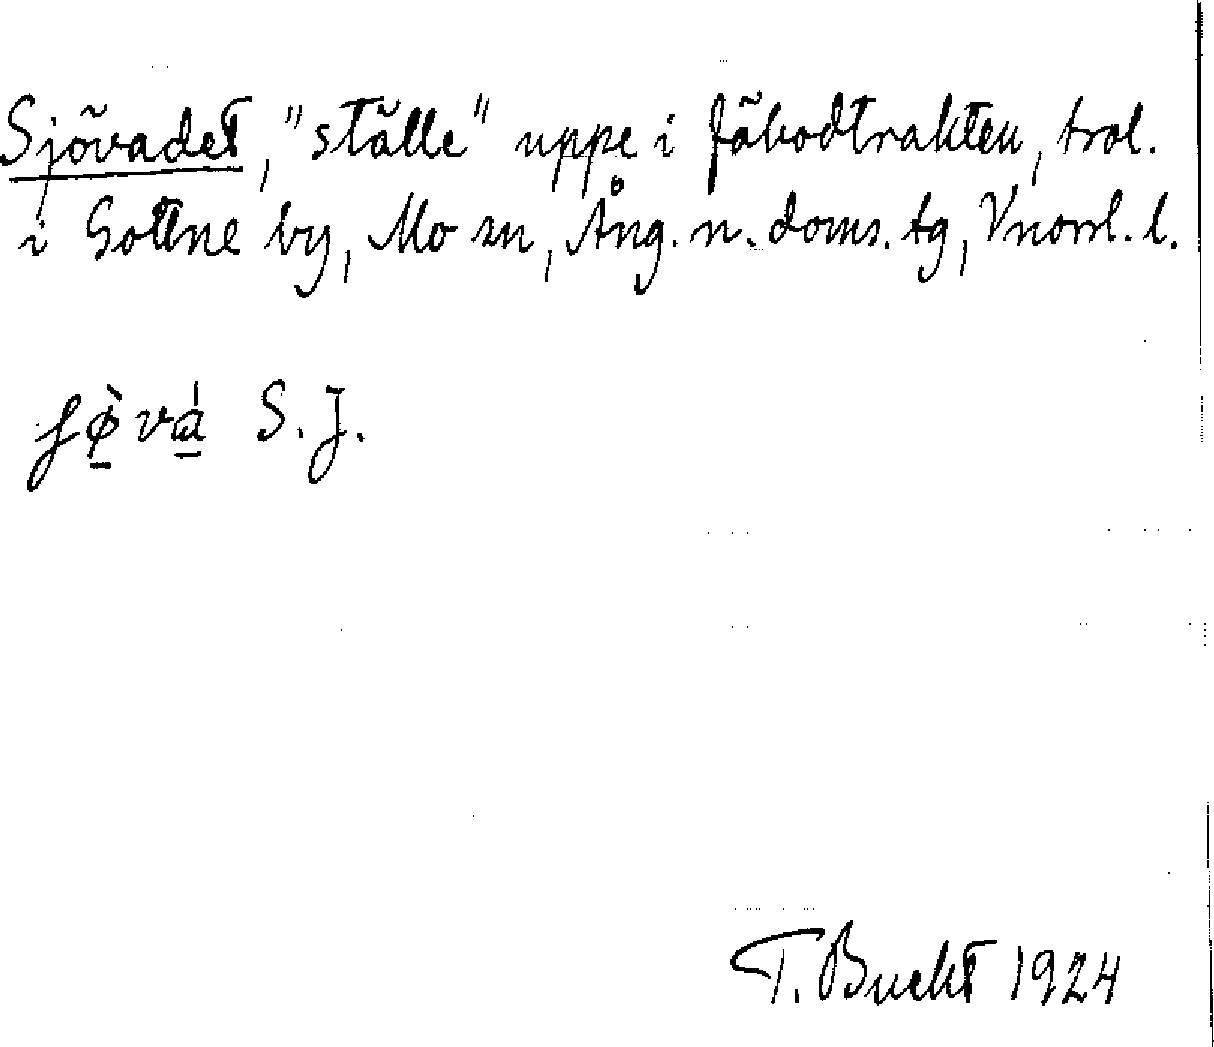 Sjövadet, "ställe" uppe i fäbodtrakten, trol.
i Gottne by, Mo sn, Ång. n. doms. tg, Vnorrl. l.
S. J.
T. Bucht 1924